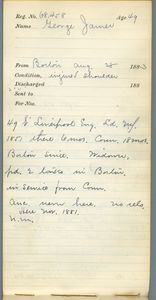 Reg. No. 68,458 Age 49
Name George James
From Boston Aug 8 1883
Condition, injured shoulder
Discharged 188
Sent to
For No.
49 E. Liverpool Eng. Ld. NY.
1851 there 6 mos. Conn. 18 mos.
Boston since. Widower,
pd. 2 taxes in Boston,
in service from Conn.
Ane. never here. no rels.
Here Nov. 1881.
n.m.